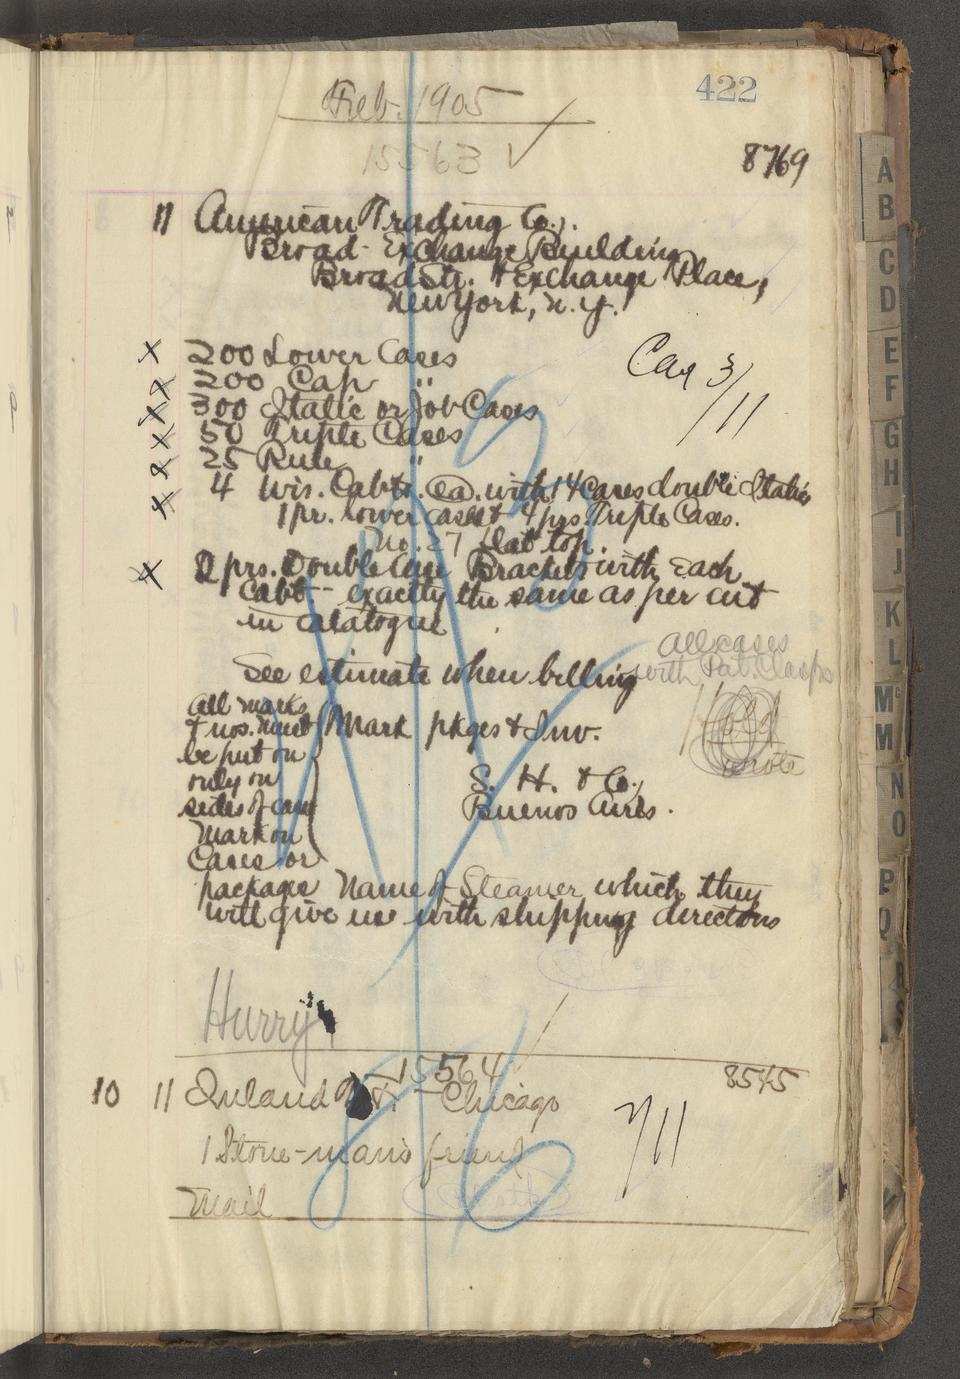 422
Feb. 1905
15563 ✓
8769
11 American Trading Co.,
Broad-Exchange Building
Broad Str. & Exchange Place,
New York, N.Y.
x 200 Lower Cases
Car 3/11
x 200 Cap "
x 300 Italic or Job Cases
x 50 Triple Cases
x 25 Rule "
x 4 Wis. Cabts. ea. with 14 Cases double Italic
1 pr. lower case & 4 prs. Triple Cases.
No. 27 flat top.
x 2 prs. Double Case Brackets with each
Cabt - exactly the same as per cut
in catalogue
all cases
with Pat. Clasps
See estimate when billing
Hold
wrote
All marks
& nos. must
be put on
only on
sides of case
Mark on
Cases or
Mark pkges & Inv.
S. H. & Co.,
Buenos Aires.
packages Name of Steamer which they
will give us with shipping directions
Hurry
15564
8545
10 11 Inland - Chicago
7/11
1 Stone-man's friend
Mail
A
B
C
D
E
F
G
H
I
J
K
L
Mc
M
N
O
P
Q
R
S